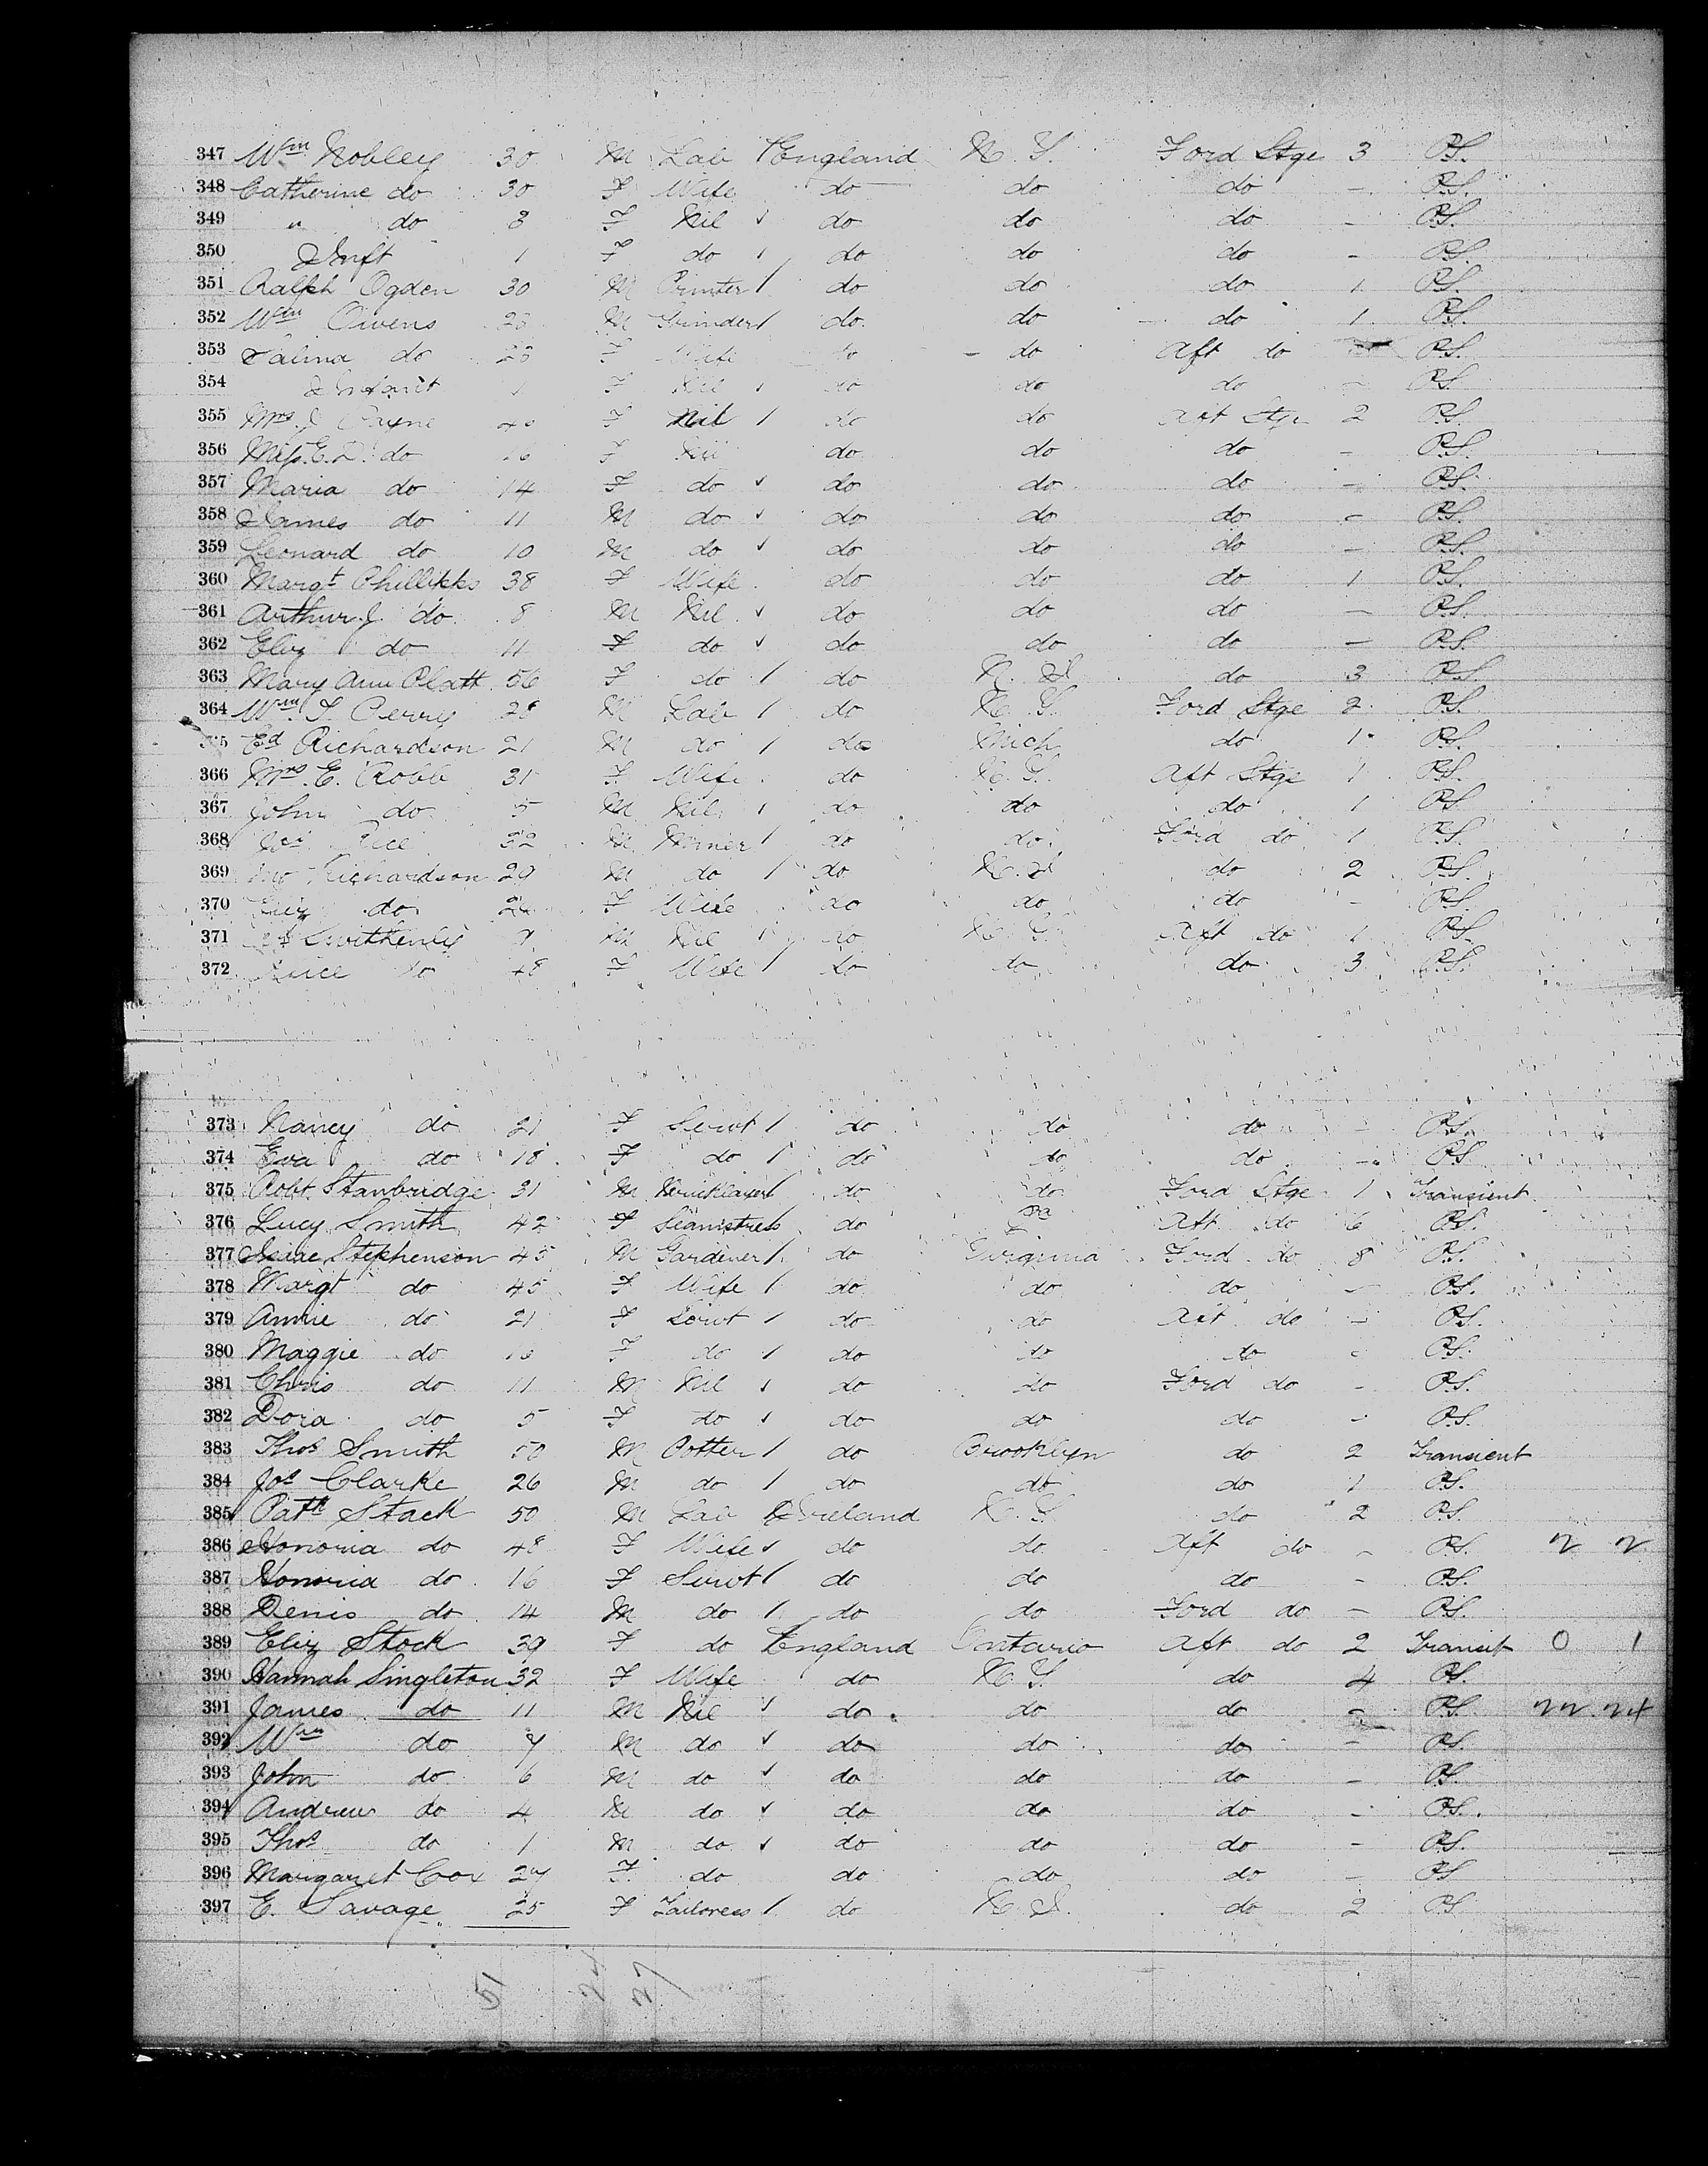 347 Wm Nobley 30 M Lab 1 England N. Y. Ford Stge 3 P.S.
348 Catherine do 30 F Wife do do do - P.S.
349 " do 3 F Nil ✓ do do do - P.S.
350 Inft 1 F do 1 do do do - P.S.
351 Ralph Ogden 30 M Printer 1 do do do 1 P.S.
352 Wm Owens 23 M Grinder 1 do do do 1 P.S.
353 Salina do 23 F Wife do do Aft do - P.S.
354 Infant 1 F Nil ✓ do do do - P.S.
355 Mrs. J Payne 40 F Nil 1 do do Aft Stge 2 P.S.
356 Miss. E. D. do 16 F Nil do do do - P.S.
357 Maria do 14 F do ✓ do do do - P.S.
358 James do 11 M do ✓ do do do - P.S.
359 Leonard do 10 M do ✓ do do do - P.S.
360 Margt Phillipps 38 F Wife do do do 1 P.S.
361 Arthur J. do 8 M Nil ✓ do do do - P.S.
362 Eliz do 11 F do ✓ do do do - P.S.
363 Mary Ann Platt 56 F do 1 do N. J. do 3 P.S.
364 Wm T. Perry 28 M Lab 1 do N. Y. Ford Stge 2 P.S.
Ed Richardson 21 M do 1 do Mich do 1 P.S.
366 Mrs. E. Robb 31 F Wife do N. Y. Aft Stge 1 P.S.
367 John do 5 M Nil 1 do do do 1 P.S.
368 Jos Rice 32 M Miner 1 do do Ford do 1 P.S.
369 Richardson 29 M do 1 do N. J. do 2 P.S.
370 Eliz do F Wife do do do - P.S.
371 M Nil 1 do N. Y. Aft do 1 P.S.
372 Alice do 48 F Wife 1 do do do 3 P.S.
373 Nancy do 21 F Servt 1 do do do - P.S.
374 Eva do 18 F do 1 do do do - P.S.
375 Robt. Stanbridge 31 M Bricklayer 1 do do Ford Stge 1 Transient
376 Lucy Smith 42 F Seamstress do Pa Aft do 6 P.S.
377 Isaac Stephenson 45 M Gardener 1 do Virginia Ford do 8 P.S.
378 Margt do 45 F Wife 1 do do do - P.S.
379 Annie do 21 F Servt 1 do do Aft do - P.S.
380 Maggie do F do 1 do do do - P.S.
381 Chris do 11 M Nil ✓ do do Ford do - P.S.
382 Dora do 5 F do ✓ do do do - P.S.
383 Thos Smith 50 M Potter 1 do Brooklyn do 2 Transient
384 Jos Clarke 26 M do 1 do do do 1 P.S.
385 Patk Stack 50 M Lab 1 Ireland N. Y. do 2 P.S.
386 Honoria do 48 F Wife ✓ do do Aft do - P.S. 2 2
387 Honoria do 16 F Servt 1 do do do - P.S.
388 Denis do 14 M do 1 do do Ford do - P.S.
389 Eliz Stock 39 F do England Ontario Aft do 2 Transit 0 1
390 Hannah Singleton 32 F Wife do N. Y. do 4 P.S.
391 James do 11 M Nil ✓ do do do - P.S. 22 24
392 Wm do 7 M do ✓ do do do - P.S.
393 John do 6 M do ✓ do do do - P.S.
394 Andrew do 4 M do ✓ do do do - P.S.
395 Thos do 1 M do ✓ do do do - P.S.
396 Margaret Cox 27 F do do do do - P.S.
397 E. Savage 25 F Tailoress 1 do N. J. do 2 P.S.
51 24 27